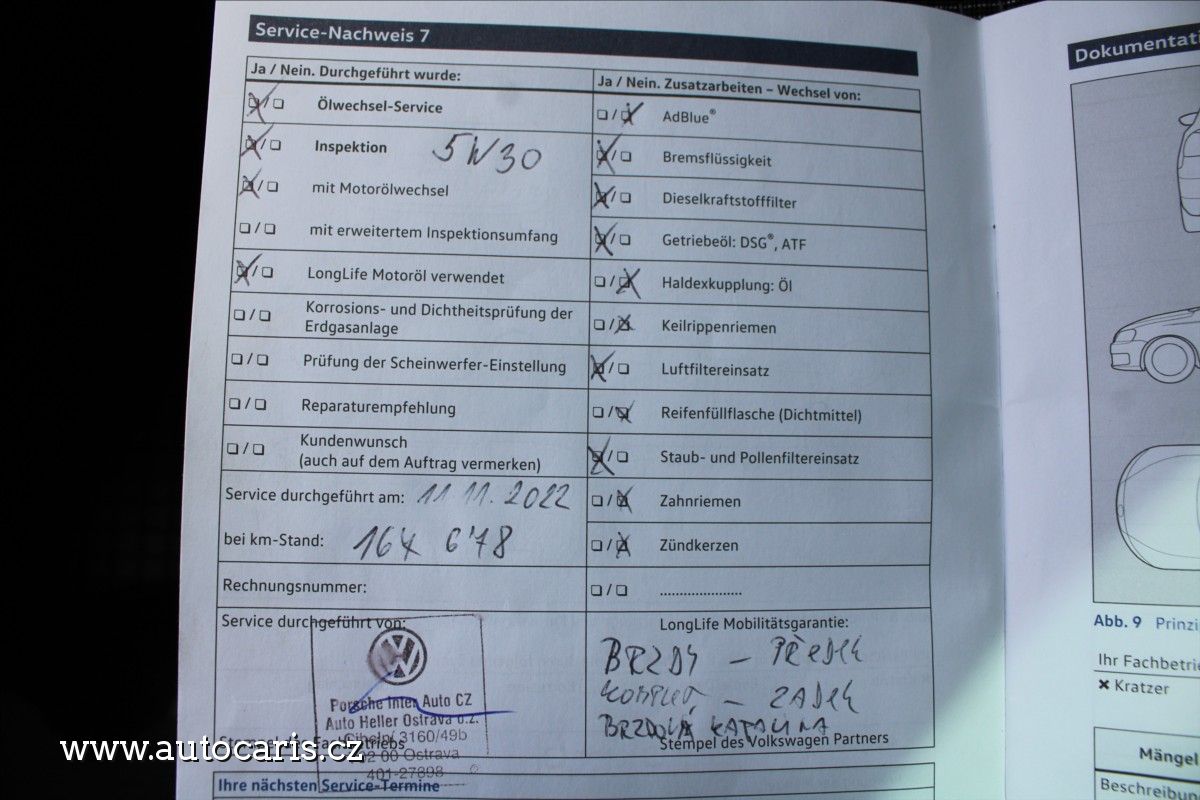 Service-Nachweis 7
Ja / Nein. Durchgeführt wurde:
Ölwechsel-Service
Inspektion 5W30
mit Motorölwechsel
mit erweitertem Inspektionsumfang
LongLife Motoröl verwendet
Korrosions- und Dichtheitsprüfung der
Erdgasanlage
Prüfung der Scheinwerfer-Einstellung
Reparaturempfehlung
Kundenwunsch
(auch auf dem Auftrag vermerken)
Service durchgeführt am: 11 11. 2022
bei km-Stand:
Rechnungsnummer:
Service durchgeführt von:
Porsche Inter Auto CZ
Auto Heller Ostrava o.z.
3160/49b
00 Ostrava
Ja / Nein. Zusatzarbeiten – Wechsel von:
AdBlue®
Bremsflüssigkeit
Dieselkraftstofffilter
Getriebeöl: DSG®, ATF
Haldexkupplung: Öl
Keilrippenriemen
Luftfiltereinsatz
Reifenfüllflasche (Dichtmittel)
Staub- und Pollenfiltereinsatz
Zahnriemen
Zündkerzen
LongLife Mobilitätsgarantie:
BRZDY – PŘEDEK
KOMPLET – ZADEK
BRZDOVÁ KAPALINA
Stempel des Volkswagen Partners
Ihre nächsten Service-Termine
Dokumentati
Abb. 9 Prinzi
Ihr Fachbetrie
× Kratzer
Mängel
Beschreibun
www.autocaris.cz